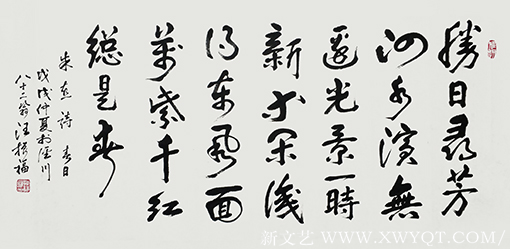 勝日尋芳
泗水濱無
邊光景一時
新等閒識
得東風面
萬紫千紅
總是春
朱熹詩 春日
戊戌仲夏於涇川
八十二翁汪振福
新文艺 / WWW.XWYQT.COM/